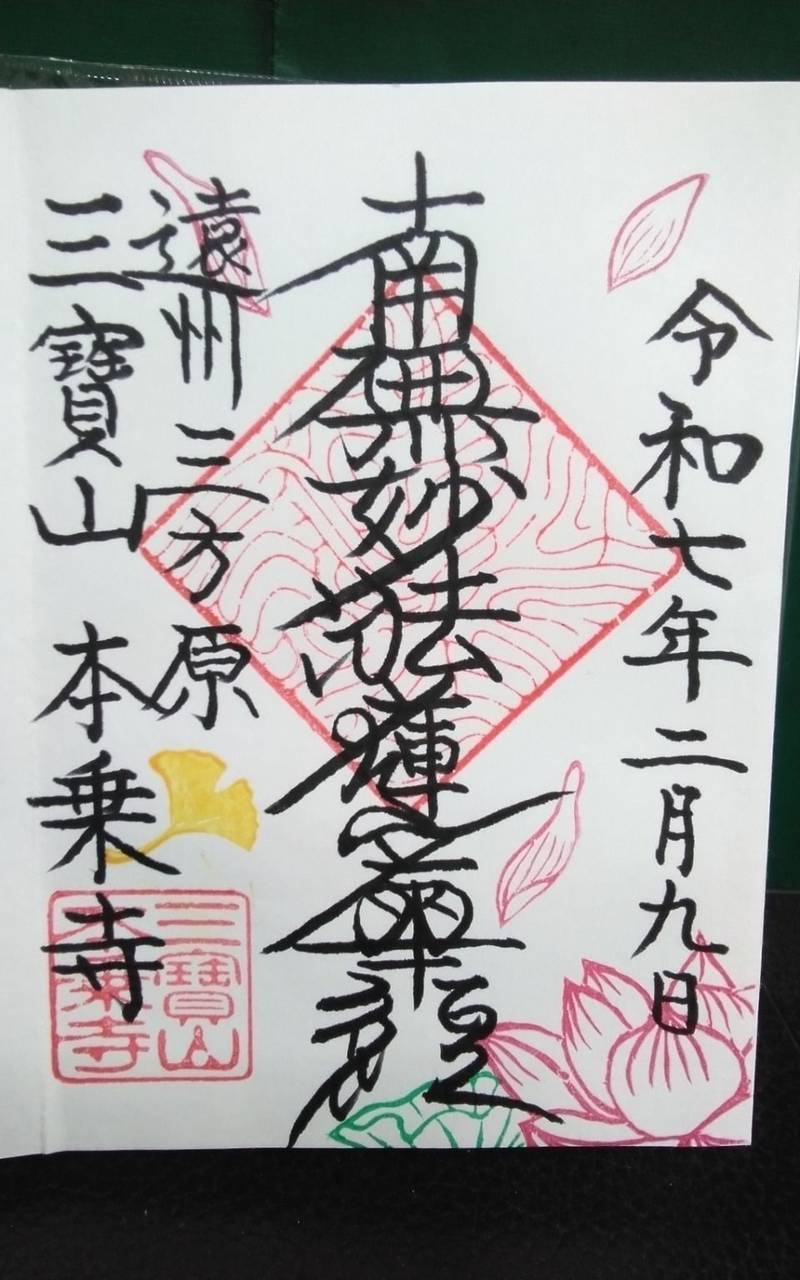 令和七年二月九日
南無妙法蓮華經
遠州三方原
三寶山 本乗寺
三寶山
本乗寺